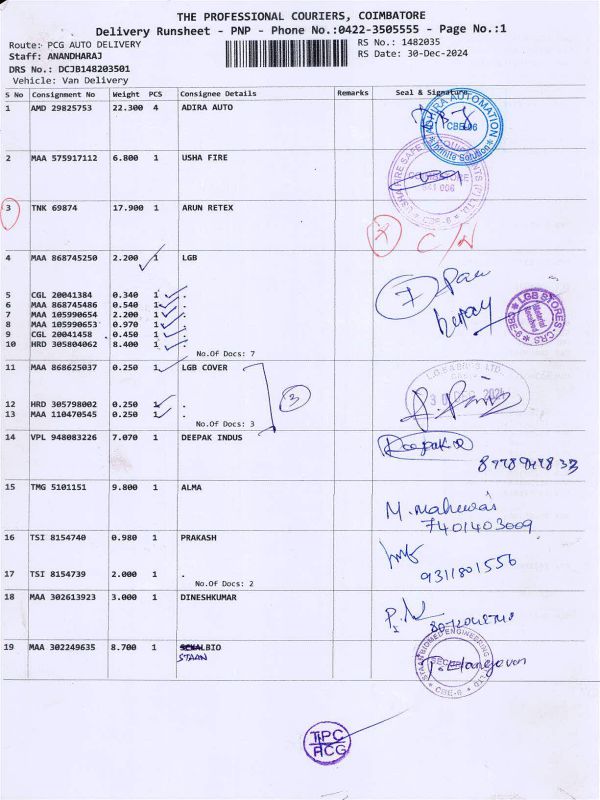 THE PROFESSIONAL COURIERS, COIMBATORE
Delivery Runsheet - PNP - Phone No.:0422-3505555 - Page No.:1
Route: PCG AUTO DELIVERY RS No.: 1482035
Staff: ANANDHARAJ RS Date: 30-Dec-2024
DRS No.: DCJB148203501
Vehicle: Van Delivery
S No Consignment No Weight PCS Consignee Details Remarks Seal & Signature
1 AMD 29825753 22.300 4 ADIRA AUTO
ADIRA AUTOMATION
CBE-06
Infinite Solution
2 MAA 575917112 6.800 1 USHA FIRE
641 006
CBE-6
3 TNK 69874 17.900 1 ARUN RETEX
C/N
4 MAA 868745250 2.200 1 LGB
7
5 CGL 20041384 0.340 1 .
6 MAA 868745486 0.540 1 .
7 MAA 105990654 2.200 1 .
8 MAA 105990653 0.970 1 .
9 CGL 20041458 0.450 1 .
10 HRD 305804062 8.400 1 .
No.Of Docs: 7
LGB STORES-CRS
Material Received
CBE-6
11 MAA 868625037 0.250 1 LGB COVER
3
12 HRD 305798002 0.250 1 .
13 MAA 110470545 0.250 1 .
No.Of Docs: 3
14 VPL 948083226 7.070 1 DEEPAK INDUS
Deepak
15 TMG 5101151 9.800 1 ALMA
7401403009
16 TSI 8154740 0.980 1 PRAKASH
9311801556
17 TSI 8154739 2.000 1 .
No.Of Docs: 2
18 MAA 302613923 3.000 1 DINESHKUMAR
19 MAA 302249635 8.700 1 BIO
STAAN
STAAN BIOMED ENGINEERING
CBE-6
TPC
PCG